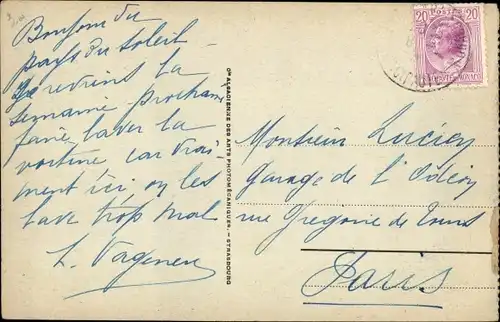 Bonjour du
pays du soleil
Je reviens la
semaine prochaine
faire laver la
voiture car vrai-
ment ici, on les
lave trop mal
L. Vagenen
Cie ALSACIENNE DES ARTS PHOTOMÉCANIQUES. — STRASBOURG
20 POSTES 20
MONACO
Monsieur Lucien
Garage de l'Odéon
rue Grégoire de Tours
Paris